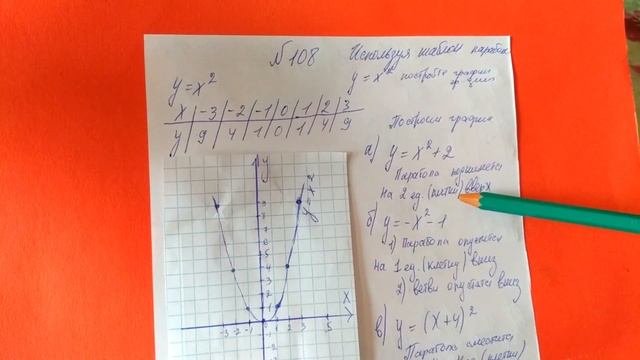 № 108 Используя шаблон параболы
y = x² постройте графики
y = x²
x | -3 | -2 | -1 | 0 | 1 | 2 | 3
y | 9 | 4 | 1 | 0 | 1 | 4 | 9
Построим график
а) y = x² + 2
Парабола поднимется
на 2 ед. (клетки) вверх
б) y = -x² - 1
1) Парабола опустится
на 1 ед. (клетку) вниз
2) ветви опустятся вниз
в) y = (x + 4)²
Парабола сместится
y
y = x²
x
-3 -2 -1 1 2 3 5